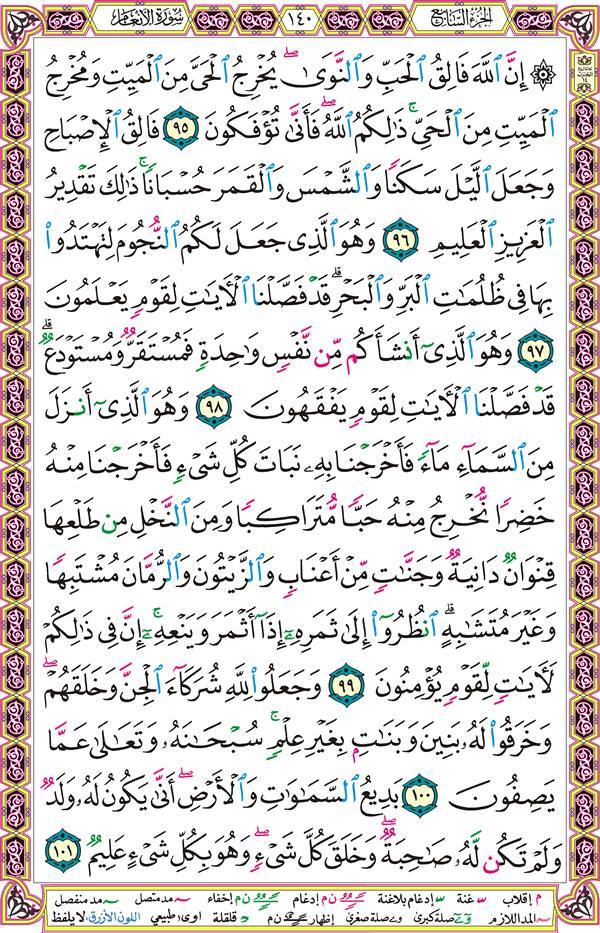 الجزء السابع
١٤٠
سورة الأنعام
۞ إِنَّ ٱللَّهَ فَالِقُ ٱلْحَبِّ وَٱلنَّوَىٰ ۖ يُخْرِجُ ٱلْحَىَّ مِنَ ٱلْمَيِّتِ وَمُخْرِجُ
ٱلْمَيِّتِ مِنَ ٱلْحَىِّ ۚ ذَٰلِكُمُ ٱللَّهُ ۖ فَأَنَّىٰ تُؤْفَكُونَ ٩٥ فَالِقُ ٱلْإِصْبَاحِ
وَجَعَلَ ٱلَّيْلَ سَكَنًا وَٱلشَّمْسَ وَٱلْقَمَرَ حُسْبَانًا ۚ ذَٰلِكَ تَقْدِيرُ
ٱلْعَزِيزِ ٱلْعَلِيمِ ٩٦ وَهُوَ ٱلَّذِى جَعَلَ لَكُمُ ٱلنُّجُومَ لِتَهْتَدُوا۟
بِهَا فِى ظُلُمَٰتِ ٱلْبَرِّ وَٱلْبَحْرِ ۗ قَدْ فَصَّلْنَا ٱلْءَايَٰتِ لِقَوْمٍ يَعْلَمُونَ
٩٧ وَهُوَ ٱلَّذِىٓ أَنشَأَكُم مِّن نَّفْسٍ وَٰحِدَةٍ فَمُسْتَقَرٌّ وَمُسْتَوْدَعٌ ۗ
قَدْ فَصَّلْنَا ٱلْءَايَٰتِ لِقَوْمٍ يَفْقَهُونَ ٩٨ وَهُوَ ٱلَّذِىٓ أَنزَلَ
مِنَ ٱلسَّمَآءِ مَآءً فَأَخْرَجْنَا بِهِۦ نَبَاتَ كُلِّ شَىْءٍ فَأَخْرَجْنَا مِنْهُ
خَضِرًا نُّخْرِجُ مِنْهُ حَبًّا مُّتَرَاكِبًا وَمِنَ ٱلنَّخْلِ مِن طَلْعِهَا
قِنْوَانٌ دَانِيَةٌ وَجَنَّٰتٍ مِّنْ أَعْنَابٍ وَٱلزَّيْتُونَ وَٱلرُّمَّانَ مُشْتَبِهًا
وَغَيْرَ مُتَشَٰبِهٍ ۗ ٱنظُرُوٓا۟ إِلَىٰ ثَمَرِهِۦٓ إِذَآ أَثْمَرَ وَيَنْعِهِۦٓ ۚ إِنَّ فِى ذَٰلِكُمْ
لَءَايَٰتٍ لِّقَوْمٍ يُؤْمِنُونَ ٩٩ وَجَعَلُوا۟ لِلَّهِ شُرَكَآءَ ٱلْجِنَّ وَخَلَقَهُمْ ۖ
وَخَرَقُوا۟ لَهُۥ بَنِينَ وَبَنَٰتٍۭ بِغَيْرِ عِلْمٍ ۚ سُبْحَٰنَهُۥ وَتَعَٰلَىٰ عَمَّا
يَصِفُونَ ١٠٠ بَدِيعُ ٱلسَّمَٰوَٰتِ وَٱلْأَرْضِ ۖ أَنَّىٰ يَكُونُ لَهُۥ وَلَدٌ
وَلَمْ تَكُن لَّهُۥ صَٰحِبَةٌ ۖ وَخَلَقَ كُلَّ شَىْءٍ ۖ وَهُوَ بِكُلِّ شَىْءٍ عَلِيمٌ ١٠١
م إقلاب غنة إدغام بلاغنة ن م إدغام ن م إخفاء مد متصل مد منفصل
المد اللازم صلة كبرى صلة صغرى إظهار ن م قلقلة اوى طبيعي اللون الأزرق: لا يلفظ